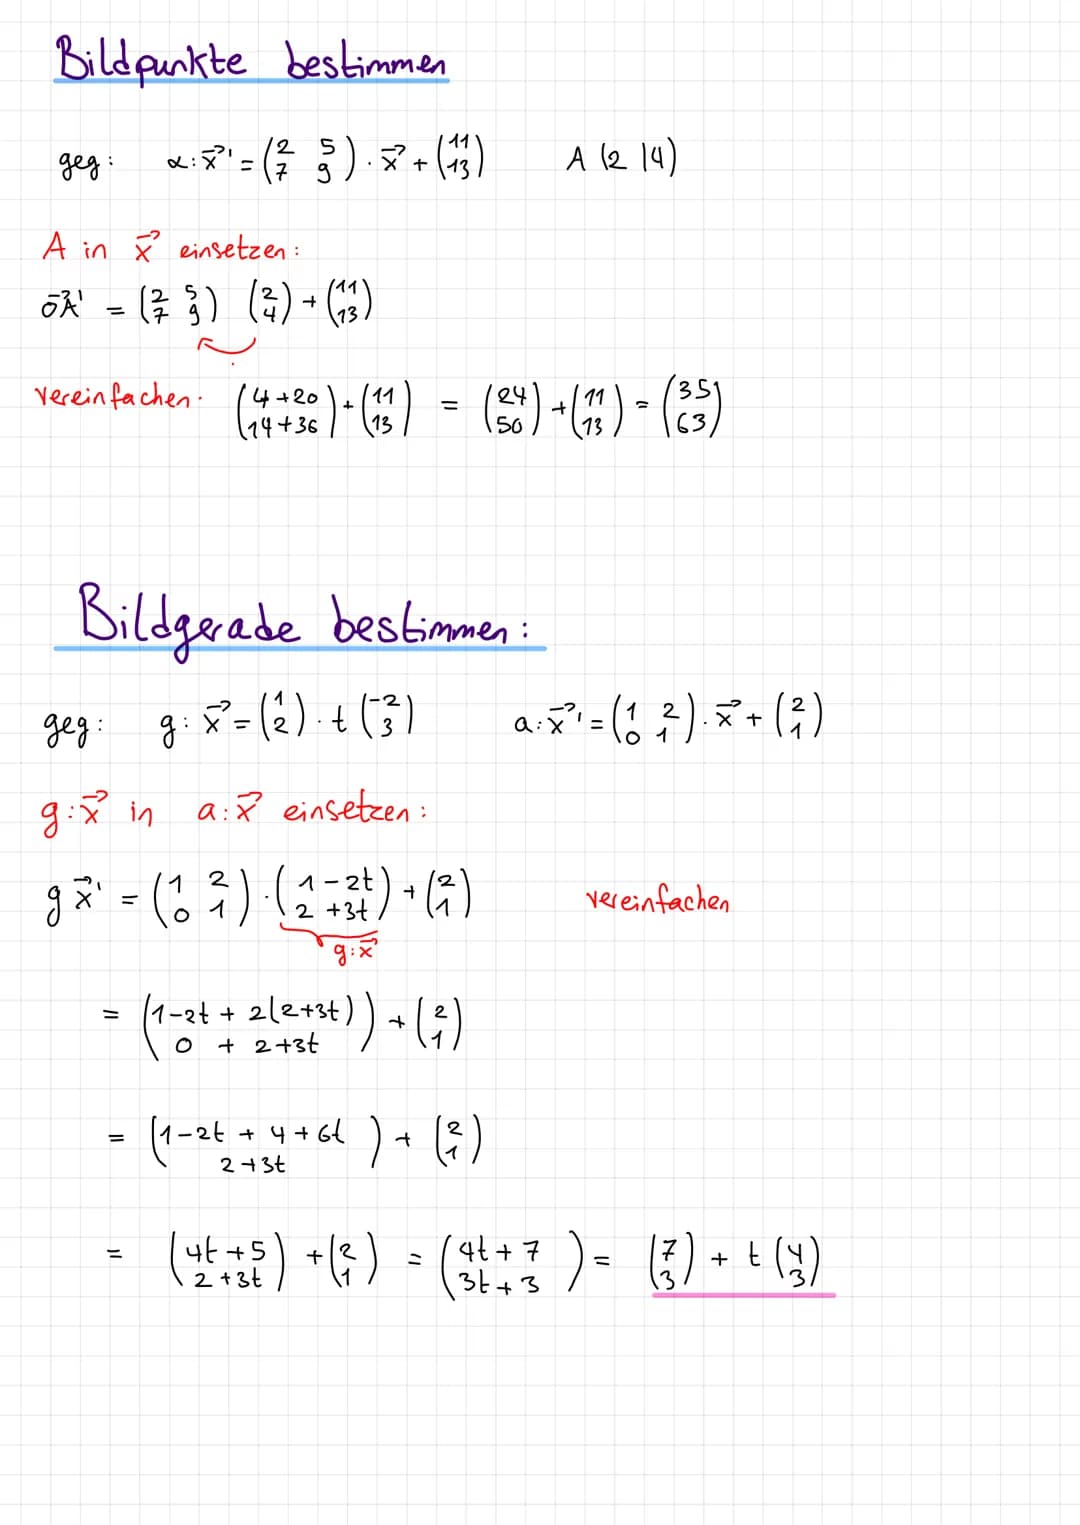 Bildpunkte bestimmen
geg: α: x⃗' = (2 5 / 7 9) · x⃗ + (11 / 13) A (2 | 4)
A in x⃗ einsetzen:
OA⃗' = (2 5 / 7 9) (2 / 4) + (11 / 13)
vereinfachen. (4 + 20 / 14 + 36) + (11 / 13) = (24 / 50) + (11 / 13) = (35 / 63)
Bildgerade bestimmen:
geg: g: x⃗ = (1 / 2) · t (-2 / 3) a: x⃗' = (1 2 / 0 1) · x⃗ + (2 / 1)
g: x⃗ in a: x⃗ einsetzen:
g x⃗' = (1 2 / 0 1) · (1 - 2t / 2 + 3t) + (2 / 1) vereinfachen
g: x⃗
= (1 - 2t + 2(2 + 3t) / 0 + 2 + 3t) + (2 / 1)
= (1 - 2t + 4 + 6t / 2 + 3t) + (2 / 1)
= (4t + 5 / 2 + 3t) + (2 / 1) = (4t + 7 / 3t + 3) = (7 / 3) + t (4 / 3)